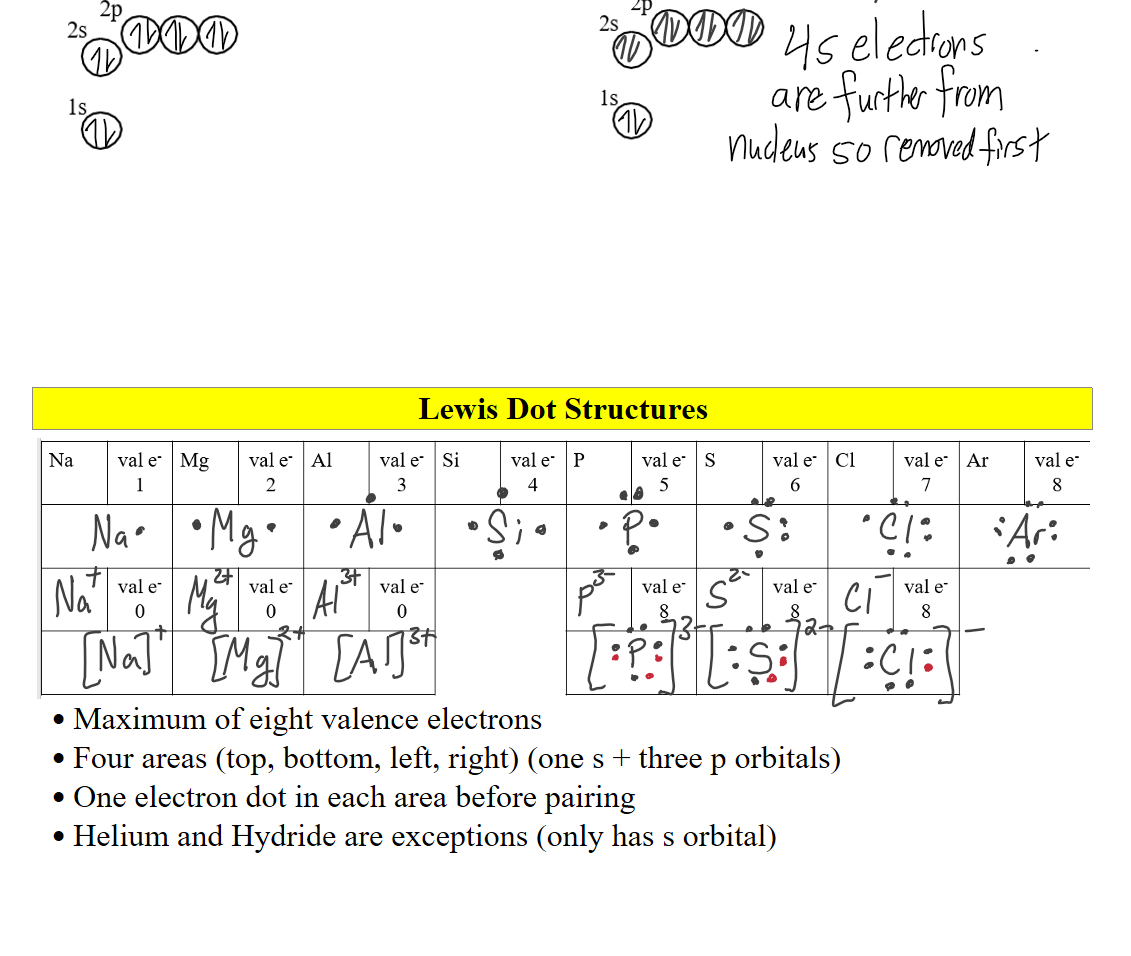 2p
2s
1s
2p
2s
1s
4s electrons
are further from
nucleus so removed first
Lewis Dot Structures
Na val e- 1 Mg val e- 2 Al val e- 3 Si val e- 4 P val e- 5 S val e- 6 Cl val e- 7 Ar val e- 8
Na Mg Al Si P S Cl Ar
Na+ val e- 0 Mg2+ val e- 0 Al3+ val e- 0 P3- val e- 8 S2- val e- 8 Cl- val e- 8
[Na]+ [Mg]2+ [Al]3+ [:P:]3- [:S:]2- [:Cl:]-
• Maximum of eight valence electrons
• Four areas (top, bottom, left, right) (one s + three p orbitals)
• One electron dot in each area before pairing
• Helium and Hydride are exceptions (only has s orbital)